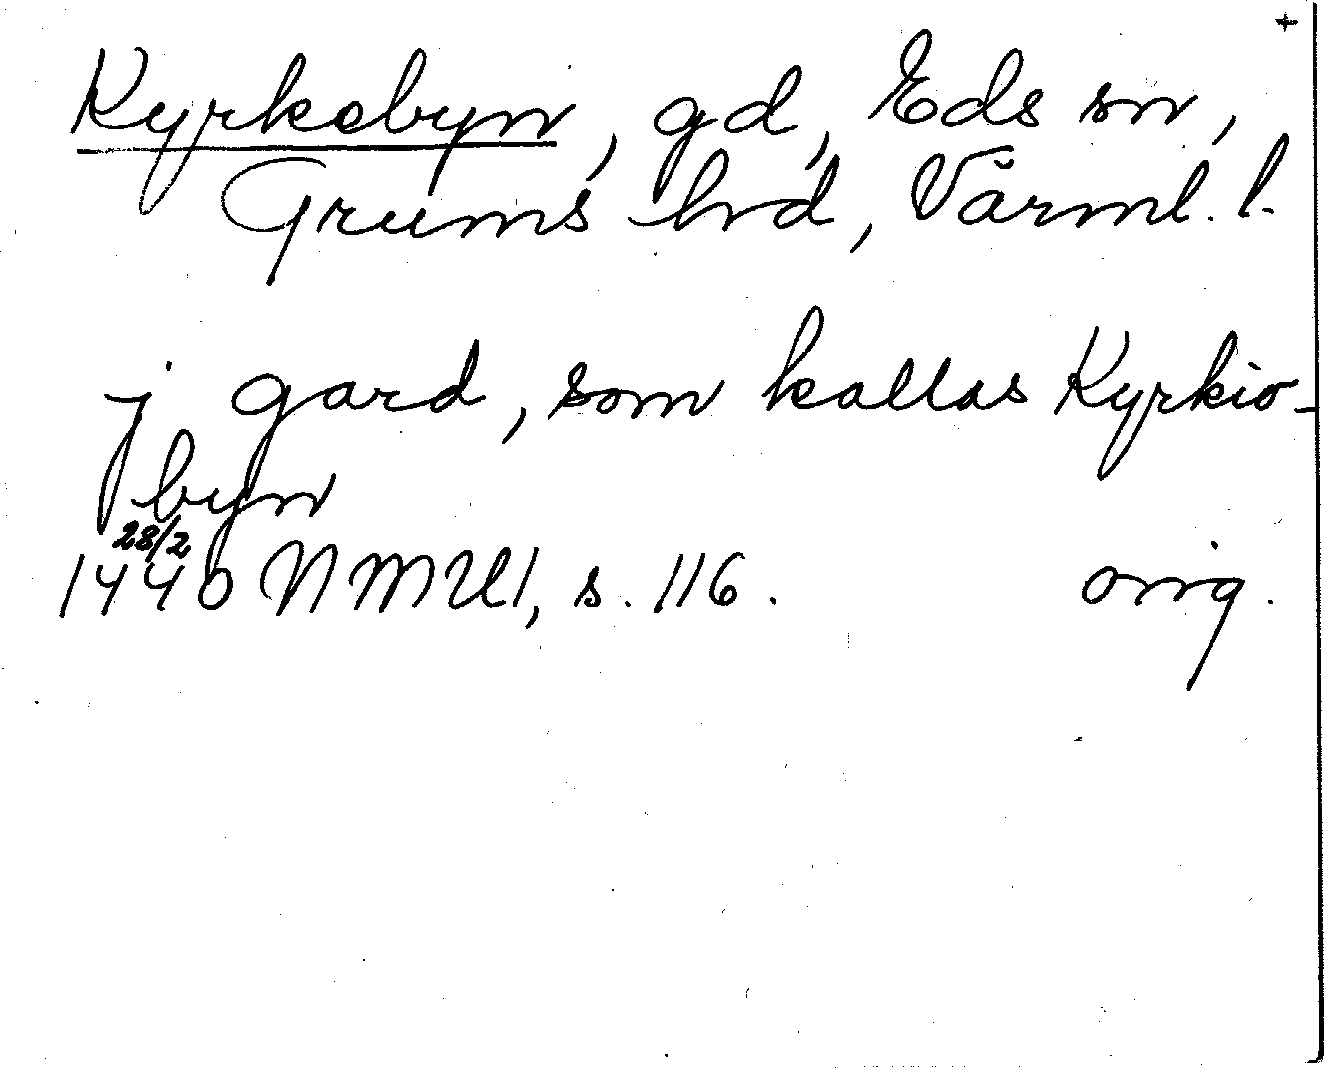 +
Kyrkebyn, gd, Eds sn,
Grums hrd, Värml. l.
j gard, som kallas Kyrkio-
byn
28/2
1440 NMU1, s. 116. orig.